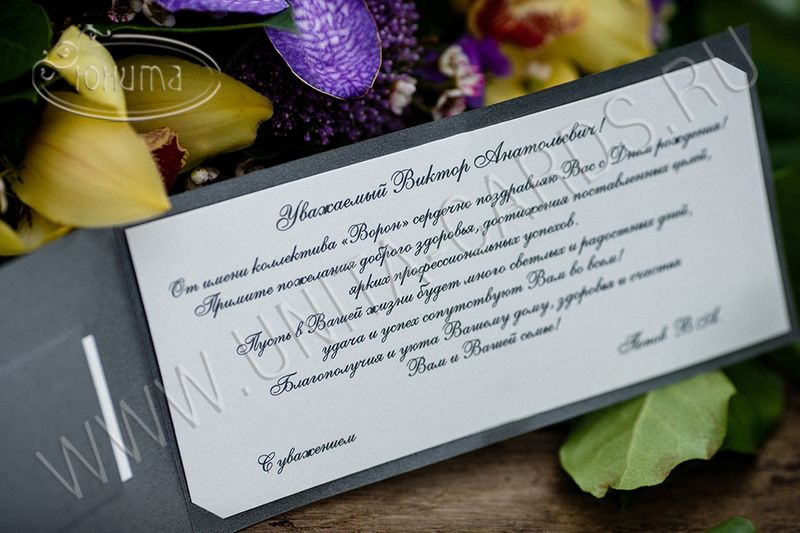 Юнита
Уважаемый Виктор Анатольевич!
От имени коллектива «Ворон» сердечно поздравляю Вас с Днем рождения!
Примите пожелания доброго здоровья, достижения поставленных целей,
ярких профессиональных успехов.
Пусть в Вашей жизни будет много светлых и радостных дней,
удача и успех сопутствуют Вам во всем!
Благополучия и уюта Вашему дому, здоровья и счастья
Вам и Вашей семье!
С уважением
Попов В.А.
WWW.UNITA-CARDS.RU